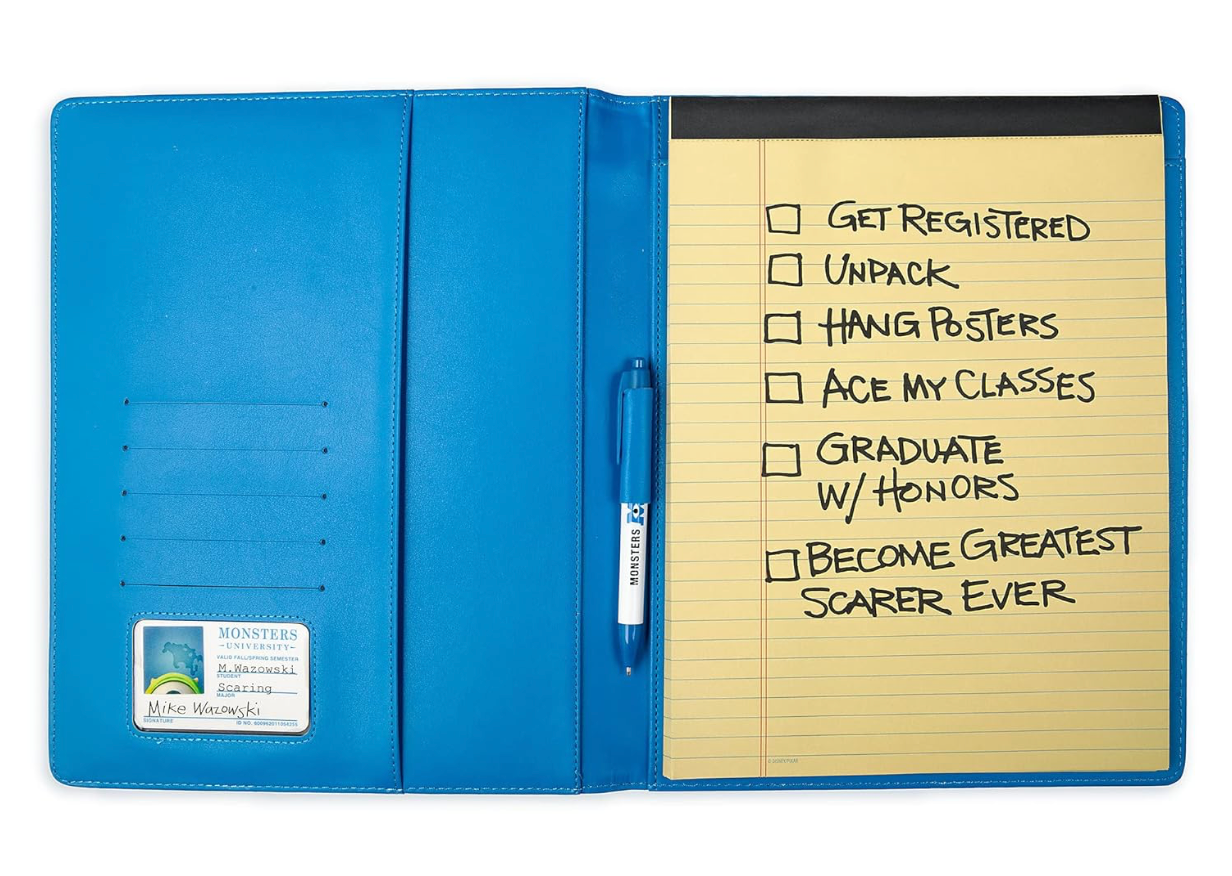 GET REGISTERED
UNPACK
HANG POSTERS
ACE MY CLASSES
GRADUATE
W/ HONORS
BECOME GREATEST
SCARER EVER
MONSTERS
MONSTERS
UNIVERSITY
VALID FALL/SPRING SEMESTER
M.Wazowski
STUDENT
Scaring
MAJOR
Mike Wazowski
SIGNATURE
ID NO.